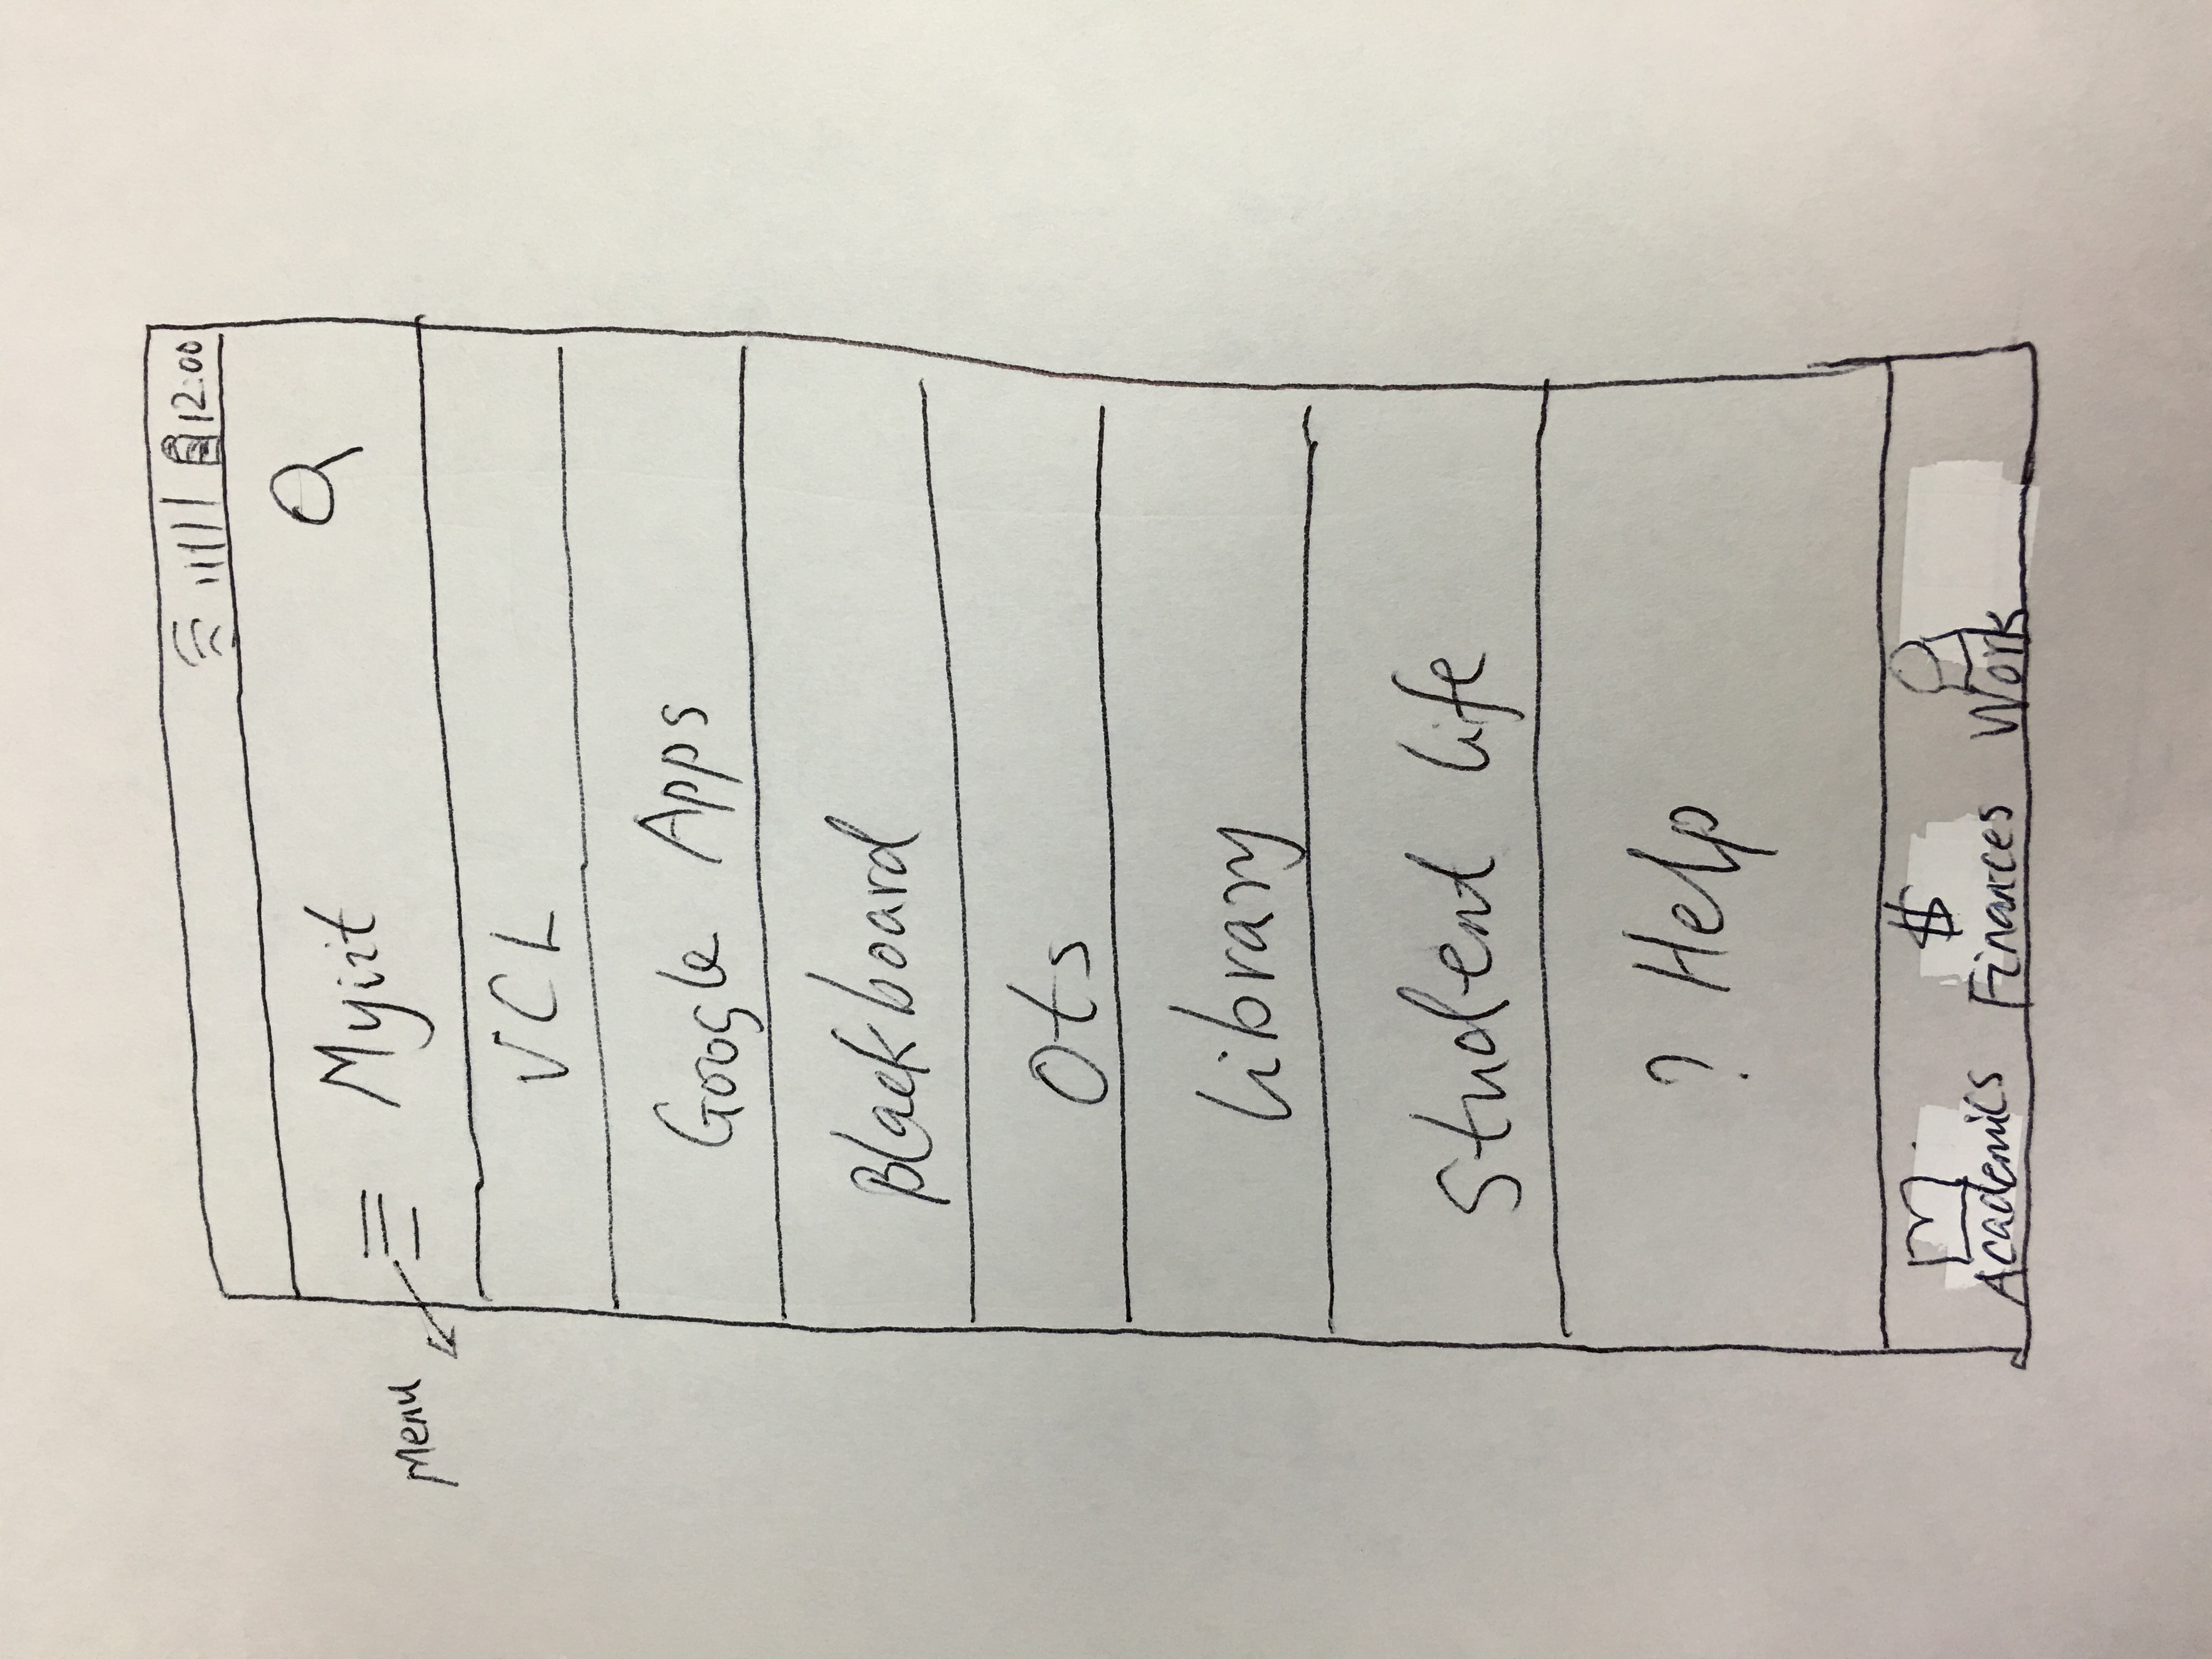 12:00
Menu
Myiit
VCL
Google Apps
Blackboard
Ots
Library
Student Life
? Help
$
Academics Finances Work